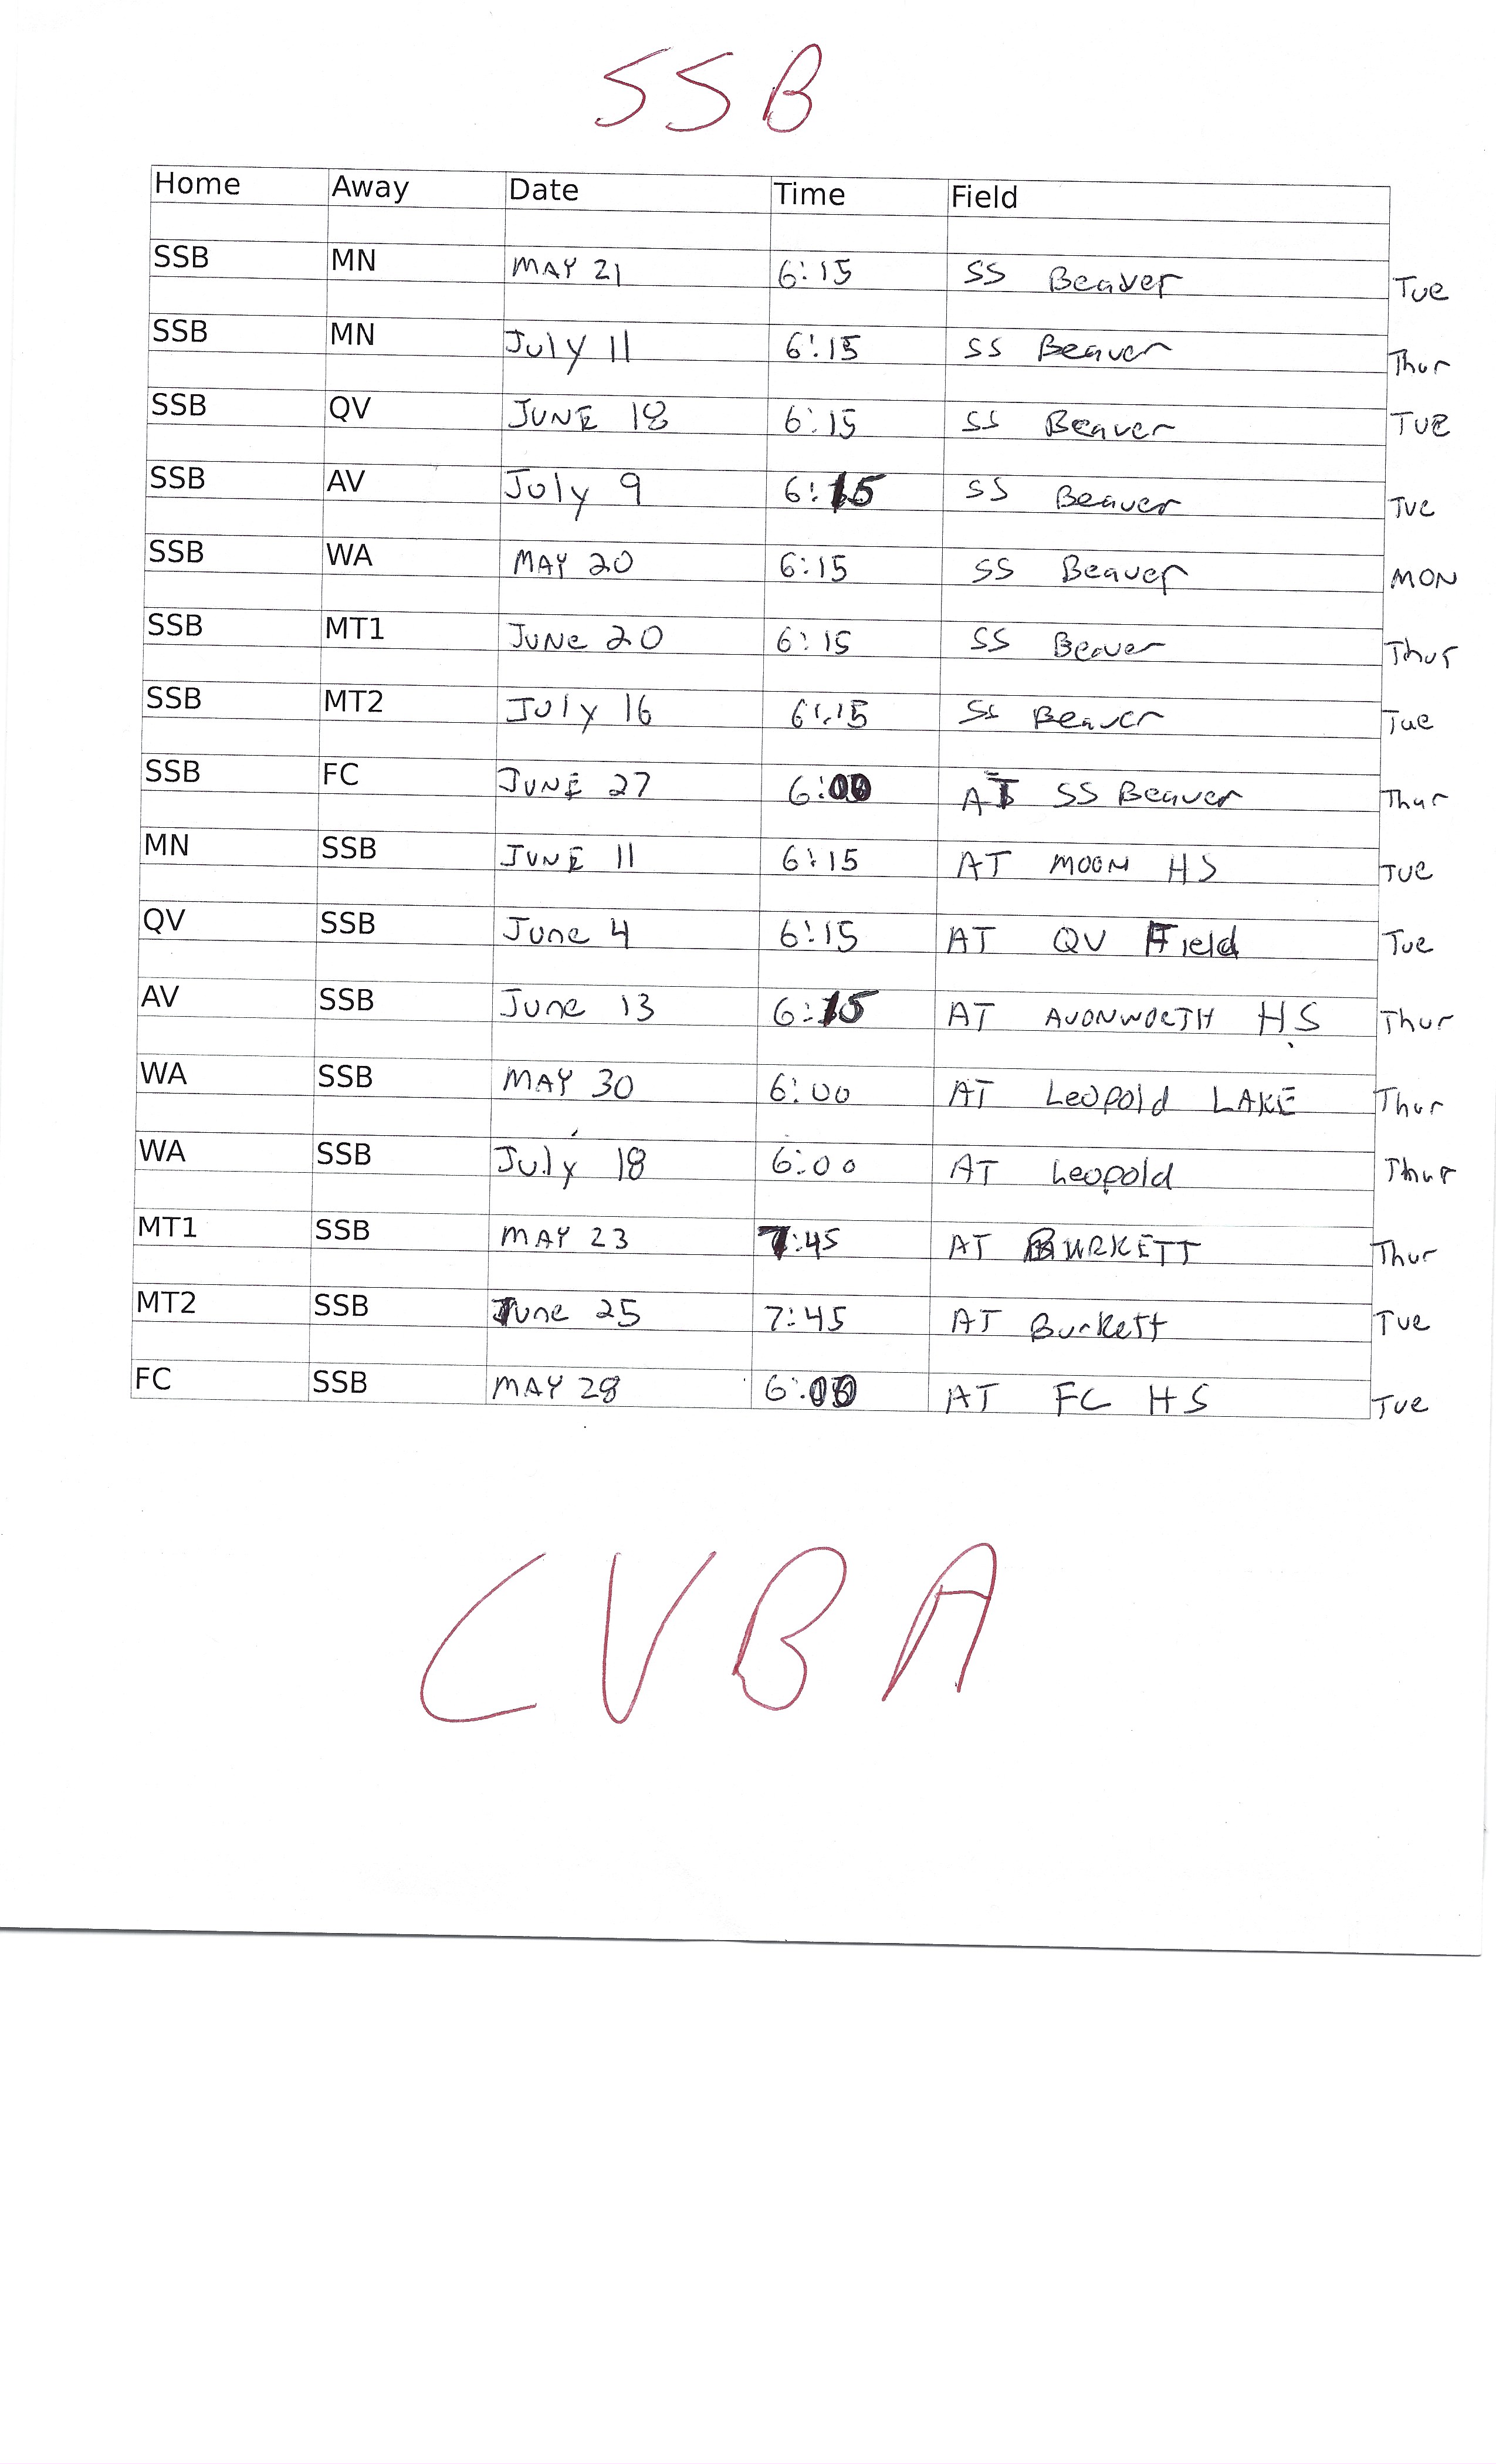 SSB
Home Away Date Time Field
SSB MN MAY 21 6:15 SS Beaver Tue
SSB MN July 11 6:15 SS Beaver Thur
SSB QV JUNE 18 6:15 SS Beaver TUE
SSB AV July 9 6:15 SS Beaver Tue
SSB WA MAY 20 6:15 SS Beaver MON
SSB MT1 JUNe 20 6:15 SS Beaver Thur
SSB MT2 July 16 6:15 SS Beaver Tue
SSB FC JUNE 27 6:00 AT SS Beaver Thur
MN SSB JUNE 11 6:15 AT MOON HS TUE
QV SSB June 4 6:15 AT QV Field Tue
AV SSB June 13 6:15 AT AVONWORTH HS Thur
WA SSB MAY 30 6:00 AT Leopold LAKE Thur
WA SSB July 18 6:00 AT Leopold Thur
MT1 SSB MAY 23 7:45 AT BURKETT Thur
MT2 SSB June 25 7:45 AT Burkett Tue
FC SSB MAY 28 6:00 AT FC HS Tue
CVBA